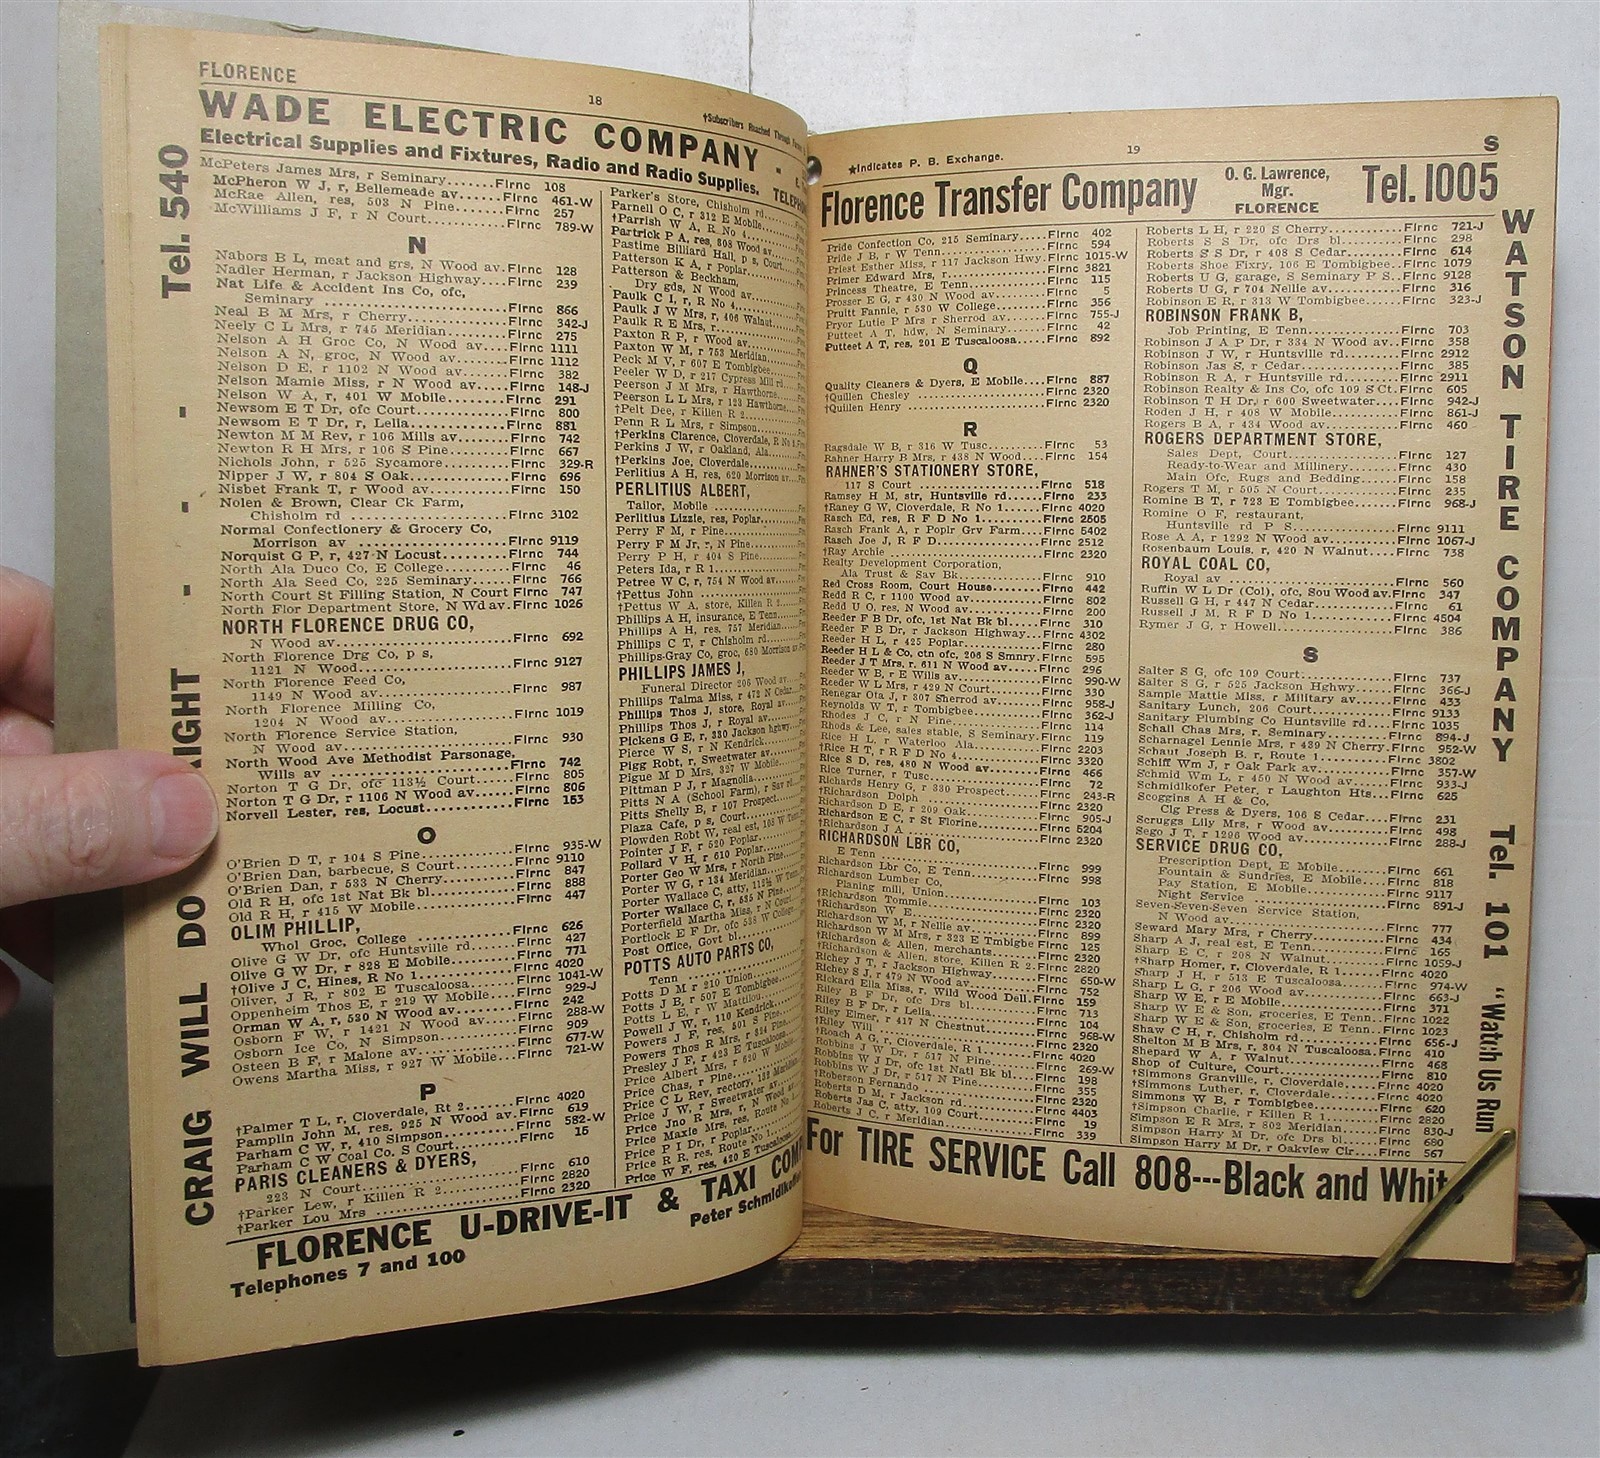 FLORENCE
18
†Subscribers Reached Through
WADE ELECTRIC COMPANY
Electrical Supplies and Fixtures, Radio and Radio Supplies.
Tel. 540
CRAIG WILL DO RIGHT
McPeters James Mrs, r Seminary.......Flrnc 108
McPheron W J, r, Bellemeade av.....Flrnc 461-W
McRae Allen, res, 503 N Pine.......Flrnc 257
McWilliams J F, r N Court.........Flrnc 789-W
N
Nabors B L, meat and grs, N Wood av.Flrnc 128
Nadler Herman, r Jackson Highway....Flrnc 239
Nat Life & Accident Ins Co, ofc,
Seminary .........Flrnc 866
Neal B M Mrs, r Cherry.........Flrnc 342-J
Neely C L Mrs, r 745 Meridian......Flrnc 275
Nelson A H Groc Co, N Wood av...Flrnc 1111
Nelson A N, groc, N Wood av.....Flrnc 1112
Nelson D E, r 1102 N Wood av....Flrnc 382
Nelson Mamie Miss, r N Wood av....Flrnc 148-J
Nelson W A, r, 401 W Mobile......Flrnc 291
Newsom E T Dr, ofc Court........Flrnc 800
Newsom E T Dr, r, Lella........Flrnc 881
Newton M M Rev, r 106 Mills av...Flrnc 742
Newton R H Mrs, r 106 S Pine....Flrnc 667
Nichols John, r 525 Sycamore......Flrnc 329-R
Nipper J W, r 804 S Oak.......Flrnc 696
Nisbet Frank T, r Wood av.......Flrnc 150
Nolen & Brown, Clear Ck Farm,
Chisholm rd .........Flrnc 3102
Normal Confectionery & Grocery Co,
Morrison av .........Flrnc 9119
Norquist G P, r, 427 N Locust......Flrnc 744
North Ala Duco Co, E College.....Flrnc 46
North Ala Seed Co, 225 Seminary....Flrnc 766
North Court St Filling Station, N Court Flrnc 747
North Flor Department Store, N Wd av.Flrnc 1026
NORTH FLORENCE DRUG CO,
N Wood av.........Flrnc 692
North Florence Drg Co, p s,
1121 N Wood.........Flrnc 9127
North Florence Feed Co,
1149 N Wood av.........Flrnc 987
North Florence Milling Co,
1204 N Wood av.........Flrnc 1019
North Florence Service Station,
N Wood av.........Flrnc 930
North Wood Ave Methodist Parsonage,
Wills av .........Flrnc 742
Norton T G Dr, ofc 113½ Court....Flrnc 805
Norton T G Dr, r 1106 N Wood av...Flrnc 806
Norvell Lester, res, Locust.......Flrnc 153
O
O'Brien D T, r 104 S Pine.......Flrnc 935-W
O'Brien Dan, barbecue, S Court.....Flrnc 9110
O'Brien Dan, r 533 N Cherry......Flrnc 847
Old R H, ofc 1st Nat Bk bl.......Flrnc 888
Old R H, r 415 W Mobile.......Flrnc 447
OLIM PHILLIP,
Whol Groc, College .........Flrnc 626
Olive G W Dr, ofc Huntsville rd.....Flrnc 427
Olive G W Dr, r 828 E Mobile.....Flrnc 771
†Olive J C, Hines, R No 1.......Flrnc 4020
Oliver, J R, r 802 E Tuscaloosa....Flrnc 1041-W
Oppenheim Thos E, r 219 W Mobile...Flrnc 929-J
Orman W A, r, 530 N Wood av....Flrnc 242
Osborn F W, r 1421 N Wood av...Flrnc 288-W
Osborn Ice Co, N Simpson......Flrnc 909
Osteen B F, r Malone av.......Flrnc 677-W
Owens Martha Miss, r 927 W Mobile...Flrnc 721-W
P
†Palmer T L, r, Cloverdale, Rt 2....Flrnc 4020
Pamplin John M, res, 925 N Wood av.Flrnc 619
Parham C W, r, 410 Simpson.....Flrnc 582-W
Parham C W Coal Co. S Court.....Flrnc 15
PARIS CLEANERS & DYERS,
223 N Court.........Flrnc 610
†Parker Lew, r Killen R 2.......Flrnc 2820
†Parker Lou Mrs .........Flrnc 2320
Parker's Store, Chisholm rd
Parnell O C, r 312 E Mobile
†Parrish W A, R No 4
Partrick P A, res, 808 Wood av
Pastime Billiard Hall, p s, Court
Patterson K A, r Poplar
Patterson & Beckham,
Dry gds, N Wood av
Paulk C I, r, R No 4
Paulk J W Mrs, r, 406 Walnut
Paulk R E Mrs, r
Paxton R P, r Wood av
Paxton W M, r 753 Meridian
Peck M V, r 607 E Tombigbee
Peeler W D, r 217 Cypress Mill rd
Peerson J M Mrs, r Hawthorne
Peerson L L Mrs, r 123 Hawthorne
†Pelt Dee, r Killen R 2
Penn R L Mrs, r Simpson
†Perkins Clarence, Cloverdale, R No 1
Perkins J W, r Oakland, Ala
†Perkins Joe, Cloverdale
Perlitius A H, res, 620 Morrison av
PERLITIUS ALBERT,
Tailor, Mobile
Perlitius Lizzie, res, Poplar
Perry F M, r Pine
Perry F M Jr, r, N Pine
Perry P H, r 404 S Pine
Peters Ida, r R 1
Petree W C, r, 754 N Wood av
†Pettus John
†Pettus W A, store, Killen R 2
Phillips A H, insurance, E Tenn
Phillips A H, res, 757 Meridian
Phillips C T, r Chisholm rd
Phillips-Gray Co, groc, 680 Morrison av
PHILLIPS JAMES J,
Funeral Director 206 Wood av
Phillips Talma Miss, r 472 N Cedar
Phillips Thos J, store, Royal av
Phillips Thos J, r Royal av
Pickens G E, r, 330 Jackson hghwy
Pierce W S, r N Kendrick
Pigg Robt, r, Sweetwater av
Pigue M D Mrs, 327 W Mobile
Pittman P J, r Magnolia
Pitts N A (School Farm), r Sav rd
Pitts Shelly B, r 107 Prospect
Plaza Cafe, p s, Court
Plowden Robt W, real est, 108 W Tenn
Pointer J F, r 520 Poplar
Pollard V H, r 610 Poplar
Porter Geo W Mrs, r North Pine
Porter W G, r 134 Meridian
Porter Wallace C, atty, 112½ W Tenn
Porter Wallace C, r, 535 N Pine
Porterfield Martha Miss, r N Court
Portlock E F Dr, ofc 538 W College
Post Office, Govt bl
POTTS AUTO PARTS CO,
Tenn
Potts D M r 210 Union
Potts J B, r 507 E Tombigbee
Potts L E, r W Mattilou
Powell J W, r 110 Kendrick
Powers J F, res, 501 S Pine
Powers Thos R Mrs, r 334 Pine
Presley J F, r 423 E Tuscaloosa
Price Albert Mrs, r 620 W Mobile
Price Chas, r Pine
Price C L Rev, rectory, 132 Meridian
Price J W, r Sweetwater av
Price Jno R Mrs, r, N Wood av
Price Maxie Mrs, res, Route No 4
Price P I Dr, r Poplar
Price R R, res, Route No 1
Price W F, res, 420 E Tuscaloosa
FLORENCE U-DRIVE-IT & TAXI COMP
Telephones 7 and 100
Peter Schmidlkofer
★Indicates P. B. Exchange.
19
S
Florence Transfer Company
O. G. Lawrence,
Mgr.
FLORENCE
Tel. 1005
Pride Confection Co, 215 Seminary....Flrnc 402
Pride J B, r W Tenn.........Flrnc 594
Priest Esther Miss, r 117 Jackson Hwy.Flrnc 1015-W
Primer Edward Mrs, r.........Flrnc 3821
Princess Theatre, E Tenn.......Flrnc 115
Prosser E G, r 430 N Wood av.....Flrnc 5
Pruitt Fannie, r 530 W College....Flrnc 356
Pryor Lutie P Mrs r Sherrod av....Flrnc 755-J
Putteet A T, hdw, N Seminary.....Flrnc 42
Putteet A T, res, 201 E Tuscaloosa...Flrnc 892
Q
Quality Cleaners & Dyers, E Mobile...Flrnc 887
†Quillen Chesley .........Flrnc 2320
†Quillen Henry .........Flrnc 2320
R
Ragsdale W B, r 316 W Tusc......Flrnc 53
Rahner Harry B Mrs, r 438 N Wood...Flrnc 154
RAHNER'S STATIONERY STORE,
117 S Court .........Flrnc 518
Ramsey H M, str, Huntsville rd....Flrnc 233
†Raney G W, Cloverdale, R No 1....Flrnc 4020
Rasch Ed, res, R F D No 1......Flrnc 2505
Rasch Frank A, r Poplr Grv Farm...Flrnc 5402
Rasch Joe J, R F D.........Flrnc 2512
†Ray Archie .........Flrnc 2320
Realty Development Corporation,
Ala Trust & Sav Bk.........Flrnc 910
Red Cross Room, Court House.....Flrnc 442
Redd R C, r 1100 Wood av.......Flrnc 802
Redd U O, res, N Wood av......Flrnc 200
Reeder F B Dr, ofc, 1st Nat Bk bl...Flrnc 310
Reeder F B Dr, r Jackson Highway...Flrnc 4302
Reeder H L, r 425 Poplar.......Flrnc 280
Reeder H L & Co, ctn ofc, 206 S Smnry.Flrnc 595
Reeder J T Mrs, r, 611 N Wood av...Flrnc 296
Reeder W B, r E Wills av.......Flrnc 990-W
Reeder W L Mrs, r 429 N Court....Flrnc 330
Renegar Ota J, r 307 Sherrod av....Flrnc 958-J
Reynolds W T, r Tombigbee......Flrnc 362-J
Rhodes J C, r N Pine........Flrnc 114
Rhods & Lee, sales stable, S Seminary.Flrnc 119
Rice H L, r Waterloo Ala.......Flrnc 2203
†Rice H T, r R F D No 4.......Flrnc 3320
Rice S D, res, 480 N Wood av....Flrnc 466
Rice Turner, r Tusc.........Flrnc 72
Richards Henry G, r 330 Prospect...Flrnc 243-R
†Richardson Dolph .........Flrnc 2320
Richardson D E, r 209 Oak......Flrnc 905-J
Richardson E C, r St Florine.....Flrnc 5204
†Richardson J A .........Flrnc 2320
RICHARDSON LBR CO,
E Tenn .........Flrnc 999
Richardson Lbr Co, E Tenn......Flrnc 998
Richardson Lumber Co,
Planing mill, Union.........Flrnc 103
†Richardson Tommie.........Flrnc 2320
†Richardson W E.........Flrnc 2320
Richardson W M, r Nellie av.....Flrnc 899
Richardson W M Mrs, r 323 E Tmbigbe Flrnc 125
†Richardson & Allen, merchants....Flrnc 2320
†Richardson & Allen, store, Killen R 2.Flrnc 2820
Richey J T, r Jackson Highway....Flrnc 650-W
Richey S J, r 479 N Wood av.....Flrnc 752
Rickard Ella Miss, r, Wild Wood Dell.Flrnc 159
Riley B F Dr, ofc Drs bl.......Flrnc 713
Riley B F Dr, r Lella.........Flrnc 104
Riley Elmer, r 417 N Chestnut....Flrnc 968-W
†Riley Will .........Flrnc 2320
†Roach A G, r, Cloverdale, R 1....Flrnc 4020
Robbins J W Dr, r 517 N Pine....Flrnc 269-W
Robbins W J Dr, ofc 1st Natl Bk bl...Flrnc 198
Robbins W J Dr, r 517 N Pine....Flrnc 355
†Roberson Fernando .........Flrnc 2320
Roberts D M, r Jackson rd......Flrnc 4403
Roberts Jas C, atty, 109 Court....Flrnc 19
Roberts J C, r Meridian.......Flrnc 339
Roberts L H, r 220 S Cherry......Flrnc 721-J
Roberts S S Dr, ofc Drs bl......Flrnc 298
Roberts S S Dr, r 408 S Cedar....Flrnc 614
Roberts Shoe Fixry, 106 E Tombigbee..Flrnc 1079
Roberts U G, garage, S Seminary P S..Flrnc 9128
Roberts U G, r 704 Nellie av.....Flrnc 316
Robinson E R, r 313 W Tombigbee...Flrnc 323-J
ROBINSON FRANK B,
Job Printing, E Tenn.........Flrnc 703
Robinson J A P Dr, r 334 N Wood av..Flrnc 358
Robinson J W, r Huntsville rd.....Flrnc 2912
Robinson Jas S, r Cedar.......Flrnc 385
Robinson R A, r Huntsville rd....Flrnc 2911
Robinson Realty & Ins Co, ofc 109 S Ct.Flrnc 605
Robinson T H Dr, r 600 Sweetwater...Flrnc 942-J
Roden J H, r 408 W Mobile......Flrnc 861-J
Rogers B A, r 434 Wood av......Flrnc 460
ROGERS DEPARTMENT STORE,
Sales Dept, Court.........Flrnc 127
Ready-to-Wear and Millinery.....Flrnc 430
Main Ofc, Rugs and Bedding......Flrnc 158
Rogers T M, r 505 N Court......Flrnc 235
Romine B T, r 723 E Tombigbee....Flrnc 968-J
Romine O F, restaurant,
Huntsville rd P S.........Flrnc 9111
Rose A A, r 1292 N Wood av.....Flrnc 1067-J
Rosenbaum Louis, r, 420 N Walnut...Flrnc 738
ROYAL COAL CO,
Royal av .........Flrnc 560
Ruffin W L Dr (Col), ofc, Sou Wood av.Flrnc 347
Russell G H, r 447 N Cedar......Flrnc 61
Russell J M, R F D No 1.......Flrnc 4504
Rymer J G, r Howell.........Flrnc 386
S
Salter S G, ofc 109 Court.......Flrnc 737
Salter S G, r 525 Jackson Hghwy....Flrnc 366-J
Sample Mattie Miss, r Military av...Flrnc 433
Sanitary Lunch, 206 Court......Flrnc 9133
Sanitary Plumbing Co Huntsville rd...Flrnc 1035
Schall Chas Mrs, r, Seminary.....Flrnc 894-J
Scharnagel Lennie Mrs, r 439 N Cherry.Flrnc 952-W
Schaut Joseph B, r, Route 1......Flrnc 3802
Schiff Wm J, r Oak Park av......Flrnc 357-W
Schmid Wm L, r 450 N Wood av....Flrnc 933-J
Schmidlkofer Peter, r Laughton Hts...Flrnc 625
Scoggins A H & Co,
Clg Press & Dyers, 106 S Cedar....Flrnc 231
Scruggs Lily Mrs, r Wood av.....Flrnc 498
Sego J T, r 1296 Wood av.......Flrnc 288-J
SERVICE DRUG CO,
Prescription Dept, E Mobile......Flrnc 661
Fountain & Sundries, E Mobile....Flrnc 818
Pay Station, E Mobile.........Flrnc 9117
Night Service .........Flrnc 891-J
Seven-Seven-Seven Service Station,
N Wood av.........Flrnc 777
Seward Mary Mrs, r Cherry......Flrnc 434
Sharp A J, real est, E Tenn......Flrnc 165
Sharp E C, r 208 N Walnut......Flrnc 1059-J
†Sharp Homer, r, Cloverdale, R 1...Flrnc 4020
Sharp J H, r 513 E Tuscaloosa....Flrnc 974-W
Sharp L G, r 206 Wood av.......Flrnc 663-J
Sharp W E, r E Mobile........Flrnc 371
Sharp W E & Son, groceries, E Tenn..Flrnc 1022
Sharp W E & Son, groceries, E Tenn..Flrnc 1023
Shaw C H, r, Chisholm rd.......Flrnc 656-J
Shelton M B Mrs, r, 304 N Tuscaloosa.Flrnc 410
Shepard W A, r Walnut........Flrnc 468
Shop of Culture, Court........Flrnc 810
†Simmons Granville, r, Cloverdale...Flrnc 4020
†Simmons Luther, r, Cloverdale....Flrnc 4020
Simmons W B, r Tombigbee......Flrnc 620
†Simpson Charlie, r Killen R 1....Flrnc 2820
Simpson E R Mrs, r 802 Meridian...Flrnc 830-J
Simpson Harry M Dr, ofc Drs bl....Flrnc 680
Simpson Harry M Dr, r Oakview Cir...Flrnc 567
WATSON TIRE COMPANY
Tel. 101 "Watch Us Run
For TIRE SERVICE Call 808---Black and Whit